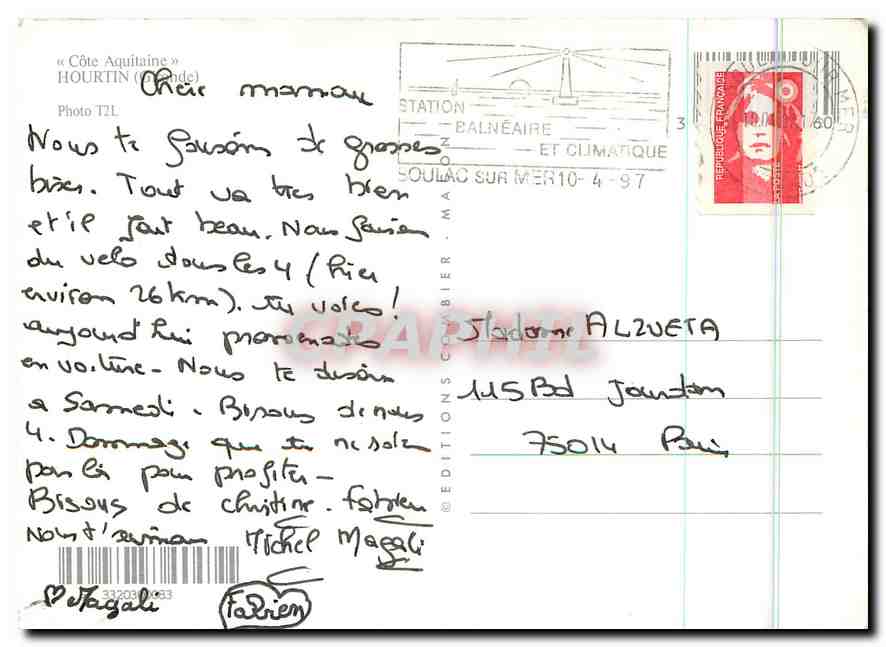 « Côte Aquitaine »
HOURTIN (Gironde)
Photo T2L
Chère maman
Nous te faisons de grosses
bises. Tout va tres bien
et il fait beau. Nous faisons
du velo tous les 4 (hier
environ 26 km). tu voies!
aujourd'hui promenades
en voiture - Nous te disons
a Samedi. Bisous de nous
4. Dommage que tu ne sois
pas là pour profiter -
Bisous de Christine. Fabien
Nous t'aimons Michel Magali
3320300083
Magali
Fabien
STATION
BALNÉAIRE
ET CLIMATIQUE
SOULAC SUR MER 10-4-97
3
RÉPUBLIQUE FRANÇAISE
LA POSTE
© EDITIONS COMBIER - MACON
CPAPHIL
Madame ALZUETA
115 Bd Jourdan
75014 Paris